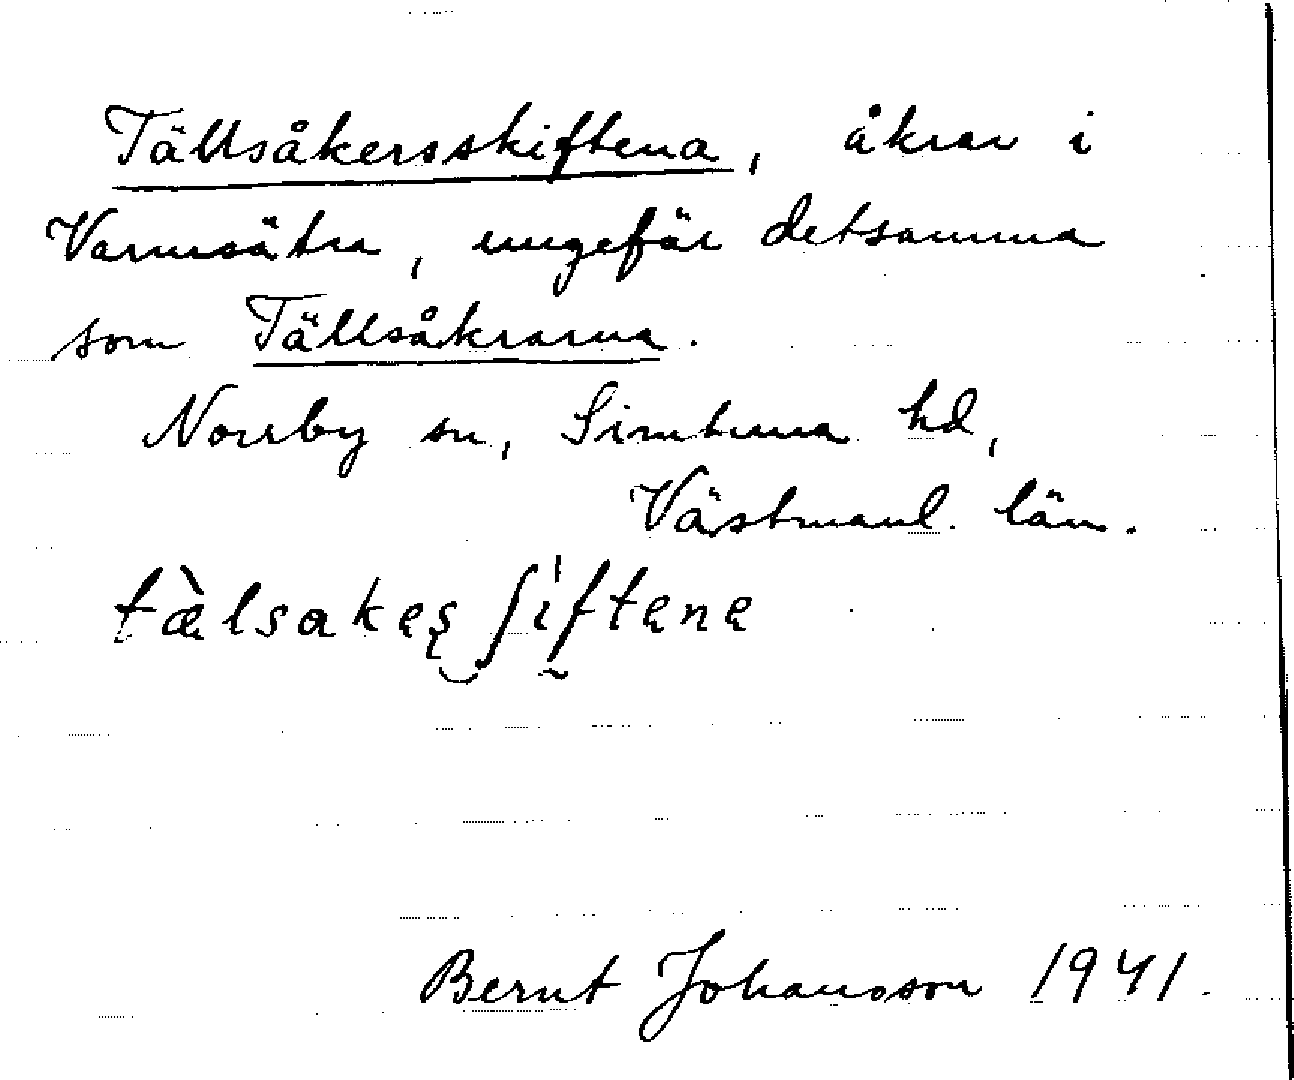 Tällsåkersskiftena, åkrar i
Varmsätra, ungefär detsamma
som Tällsåkrarna.
Norrby sn, Simtuna hd,
Västmanl. län.
tæ̀lsakęş ʃi̍ftęnę
Bernt Johansson 1941.